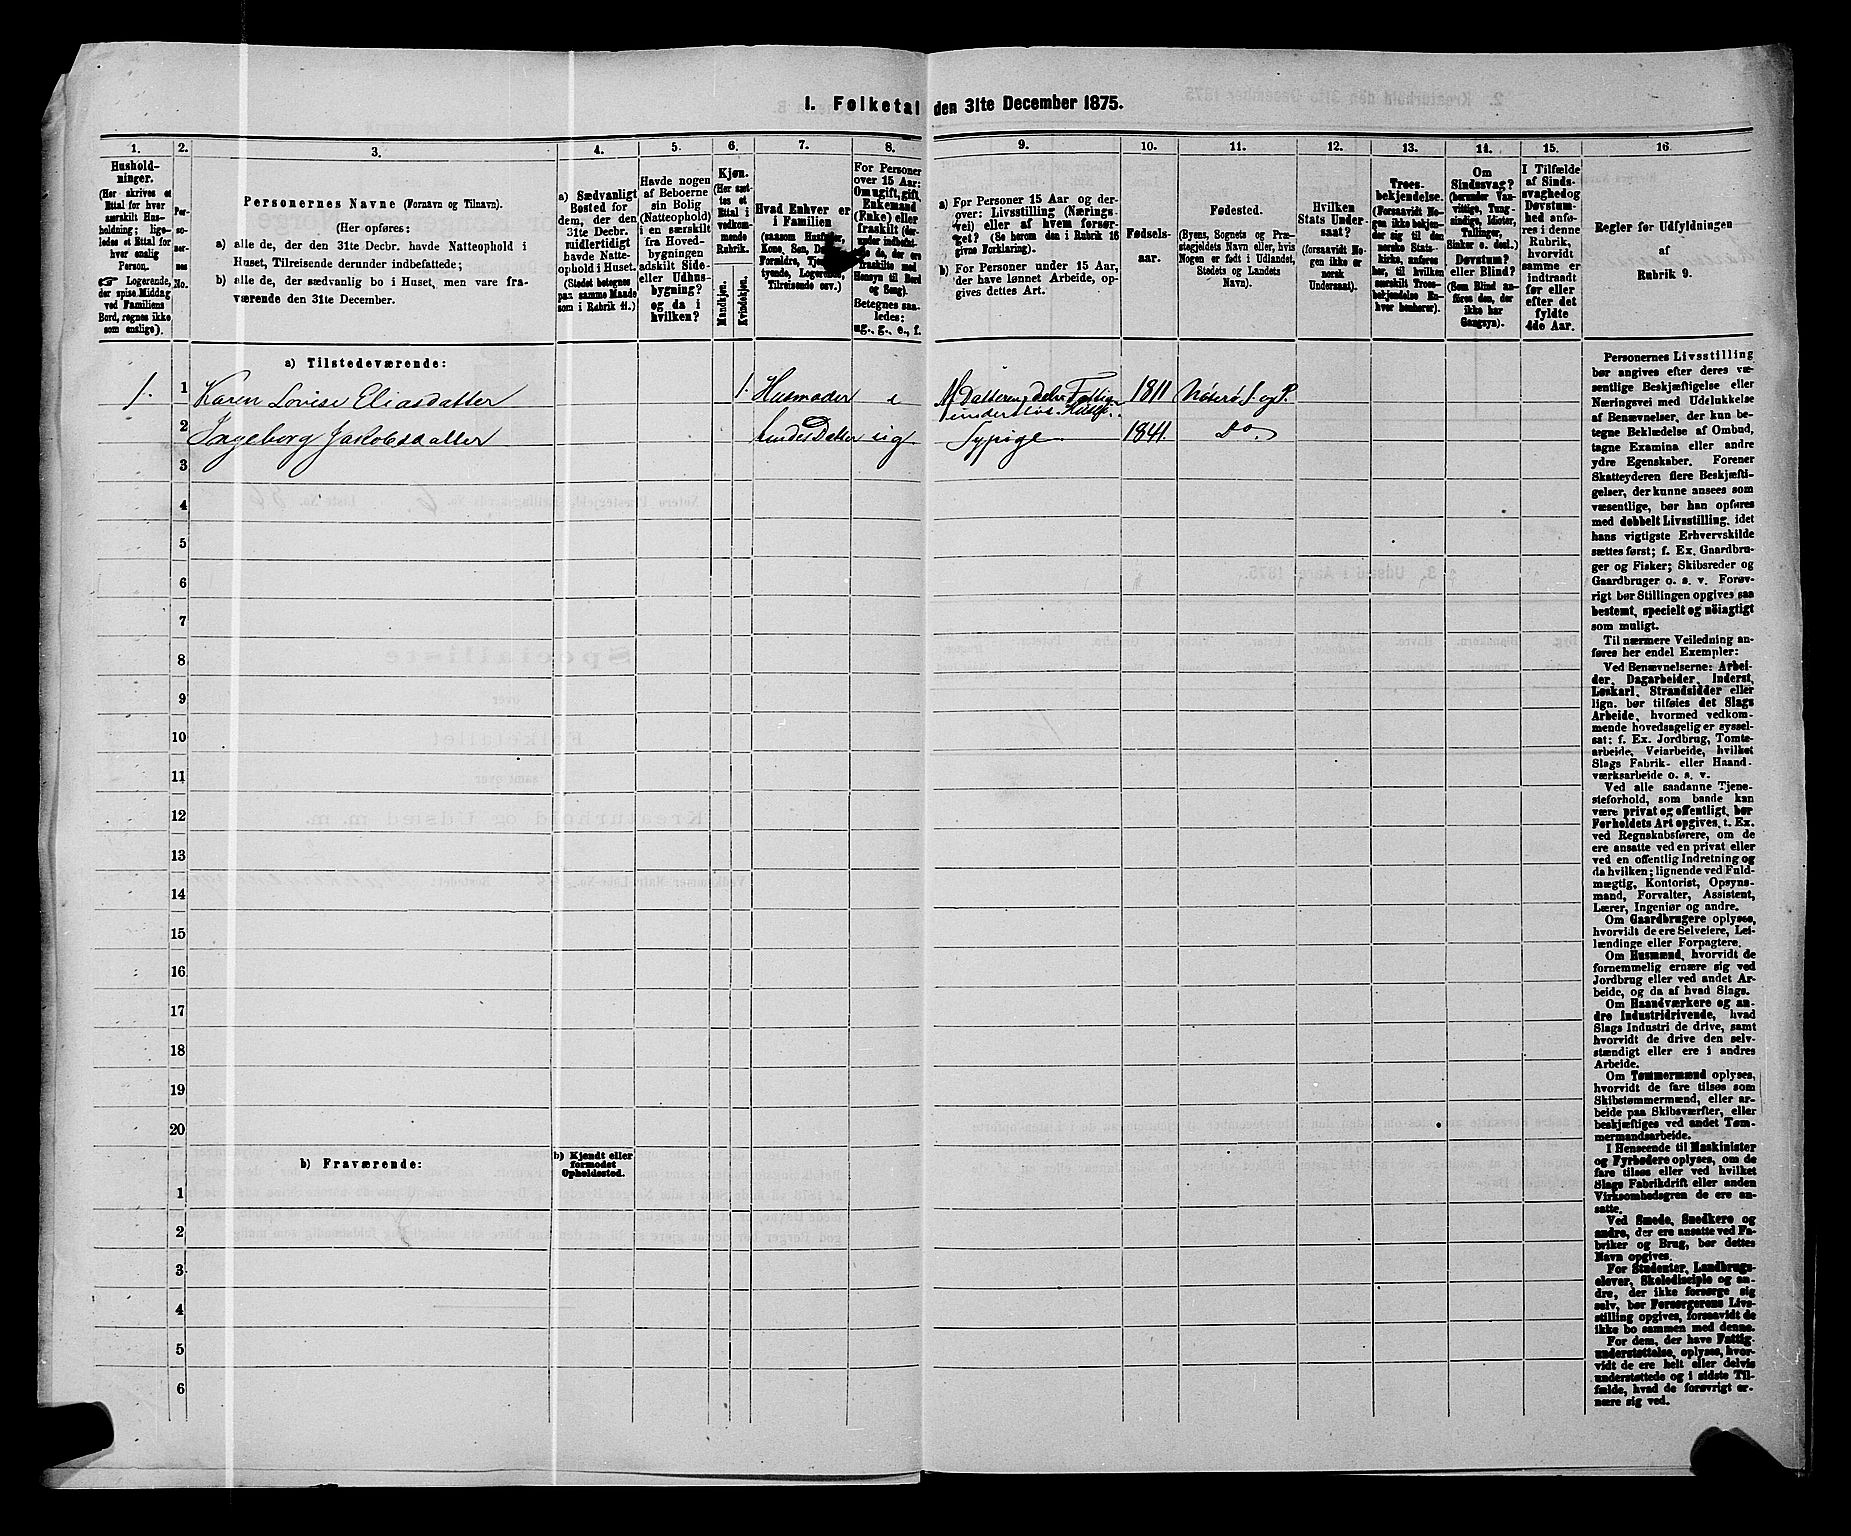 1. Folketal den 31te December 1875.
1. 2. 3. 4. 5. 6. 7. 8. 9. 10. 11. 12. 13. 14. 15. 16.
Hushold-
ninger.
(Her skrives et
Ettal for hver
særskilt Hus-
holdning; lige-
ledes et Ettal for
hver enslig
Person.
☞ Logerende,
der spise Middag
ved Familiens
Bord, regnes ikke
som enslige).
Per-
so-
ner-
nes
No.
Personernes Navne (Fornavn og Tilnavn).
(Her opføres:
a) alle de, der den 31te Decbr. havde Natteophold i
Huset, Tilreisende derunder indbefattede;
b) alle de, der sædvanlig bo i Huset, men vare fra-
værende den 31te December.
a) Sædvanligt
Bosted for
dem, der den
31te Decbr.
midlertidigt
havde Natte-
ophold i Huset.
(Stedet betegnes
paa samme Maade
som i Rubrik 11.)
Havde nogen
af Beboerne
sin Bolig
(Natteophold)
i en særskilt
fra Hoved-
bygningen
adskilt Side-
eller Udhus-
bygning?
og da i
hvilken?
Kjøn.
(Her sæt-
tes et
Ettal i
vedkom-
mende
Rubrik.
Mandkjøn.
Kvindekjøn.
Hvad Enhver er
i Familien
(saasom Husfa
Kone, Søn, Da
Forældre, Tje
tyende, Loger
Tilreisende osv.)
For Personer
over 15 Aar:
Om ugift, gift,
Enkemand
(Enke) eller
fraskilt (der-
under indbefat-
de, der ere
fraskilte med
Hensyn til Bord
og Seng).
Betegnes saa-
ledes:
ug., g., e., f.
a) For Personer 15 Aar og der-
over: Livsstilling (Nærings-
vei) eller af hvem forsør-
get? (Se herom den i Rubrik 16
givne Forklaring).
b) For Personer under 15 Aar,
der have lønnet Arbeide, op-
gives dettes Art.
Fødsels-
aar.
Fødested.
(Byens, Sognets og Præ-
stegjeldets Navn eller, hvis
Nogen er født i Udlandet,
Stedets og Landets
Navn).
Hvilken
Stats Under-
saat?
(forsaavidt No-
gen ikke er
norsk
Undersaat).
Troes-
bekjendelse.
(Forsaavidt No-
gen ikke bekjen-
der sig til den
norske Stats-
kirke, anføres
her, til hvilken
særskilt Troes-
bekjendelse En-
hver henhører).
Om
Sindssvag?
(herunder Van-
vittige, Tung-
sindige, Idioter,
Tullinger,
Sinker o. desl.)
Døvstum?
eller Blind?
(Som Blind an-
føres den, der
ikke har
Gangsyn).
I Tilfælde
af Sinds-
svaghed og
Døvstum-
hed anfø-
res i denne
Rubrik,
hvorvidt
samme er
indtraadt
før eller
efter det
fyldte
4de Aar.
Regler for Udfyldningen
af
Rubrik 9.
a) Tilstedeværende:
1. 1 Karen Lovise Eliasdatter 1. Husmoder e Datteren, delvis Fattig- 1811 Nøterø S. og P.
understøt.
2 Ingeborg Jakobsdatter hendes Datter ug Sypige 1841. Do.
3
4
5
6
7
8
9
10
11
12
13
14
15
16
17
18
19
20
b) Fraværende:
b) Kjendt eller
formodet
Opholdssted.
1
2
3
4
5
6
Personernes Livsstilling
bør angives efter deres væ-
sentlige Beskjæftigelse eller
Næringsvei med Udelukkelse
af Benævnelser, der kun be-
tegne Beklædelse af Ombud,
tagne Examina eller andre
ydre Egenskaber. Forener
Skatteyderen flere Beskjæfti-
gelser, der kunne ansees som
væsentlige, bør han opføres
med dobbelt Livsstilling, idet
hans vigtigste Erhvervskilde
sættes først; f. Ex. Gaardbru-
ger og Fisker; Skibsreder og
Gaardbruger o. s. v. Forøv-
rigt bør Stillingen opgives saa
bestemt, specielt og nøiagtigt
som muligt.
Til nærmere Veiledning an-
føres her endel Exempler:
Ved Benævnelserne: Arbei-
der, Dagarbeider, Inderst,
Løskarl, Strandsidder eller
lign. bør tilføies det Slags
Arbeide, hvormed vedkom-
mende hovedsagelig er syssel-
sat: f. Ex. Jordbrug, Tomte-
arbeide, Veiarbeide, hvilket
Slags Fabrik- eller Haand-
værksarbeide o. s. v.
Ved alle saadanne Tjene-
steforhold, som baade kan
være privat og offentligt, bør
Forholdets Art opgives, t. Ex.
ved Regnskabsførere, om de
ere ansatte ved en privat eller
ved en offentlig Indretning og
da hvilken; lignende ved Fuld-
mægtig, Kontorist, Opsyns-
mand, Forvalter, Assistent,
Lærer, Ingeniør og andre.
Om Gaardbrugere oplyses,
hvorvidt de ere Selveiere, Lei-
lændinge eller Forpagtere.
Om Husmænd, hvorvidt de
fornemmelig ernære sig ved
Jordbrug eller ved andet Ar-
beide, og da af hvad Slags.
Om Haandværkere og an-
dre Industridrivende, hvad
Slags Industri de drive, samt
hvorvidt de drive den selv-
stændigt eller ere i andres
Arbeide.
Om Tømmermænd oplyses,
hvorvidt de fare tilsøs som
Skibstømmermænd, eller ar-
beide paa Skibsværfter, eller
beskjæftiges ved andet Tøm-
mermandsarbeide.
I Henseende til Maskinister
og Fyrbødere oplyses, om de
fare tilsøs eller ved hvilket
Slags Fabrikdrift eller anden
Virksomhedsgren de ere an-
satte.
Ved Smede, Snedkere og
andre, der ere ansatte ved Fa-
briker og Brug, bør dettes
Navn opgives.
For Studenter, Landbrugs-
elever, Skoledisciple og an-
dre, der ikke forsørge sig
selv, bør Forsørgerens Livs-
stilling opgives, forsaavidt de
ikke bo sammen med denne.
For dem, der have Fattig-
understøttelse, oplyses, hvor-
vidt de ere helt eller delvis
understøttede og i sidste Til-
fælde, hvad de forøvrigt er-
nære sig ved.